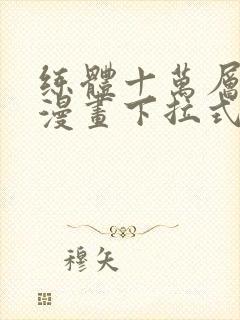 練體十萬層
漫畫下拉式
穆矢